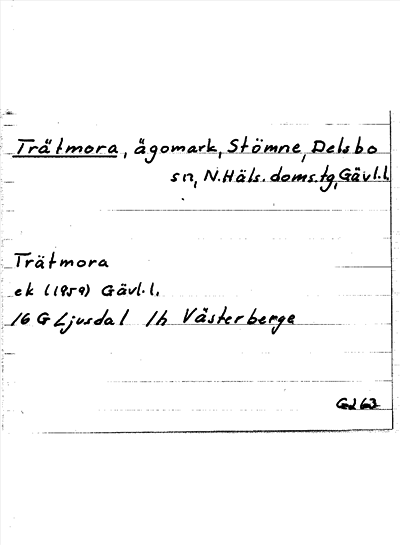 Trätmora, ägomark, Stömne, Delsbo
sn, N.Häls. doms.tg, Gävl.l.
Trätmora
ek (1959) Gävl.l.
16 G Ljusdal 1h Västerberge